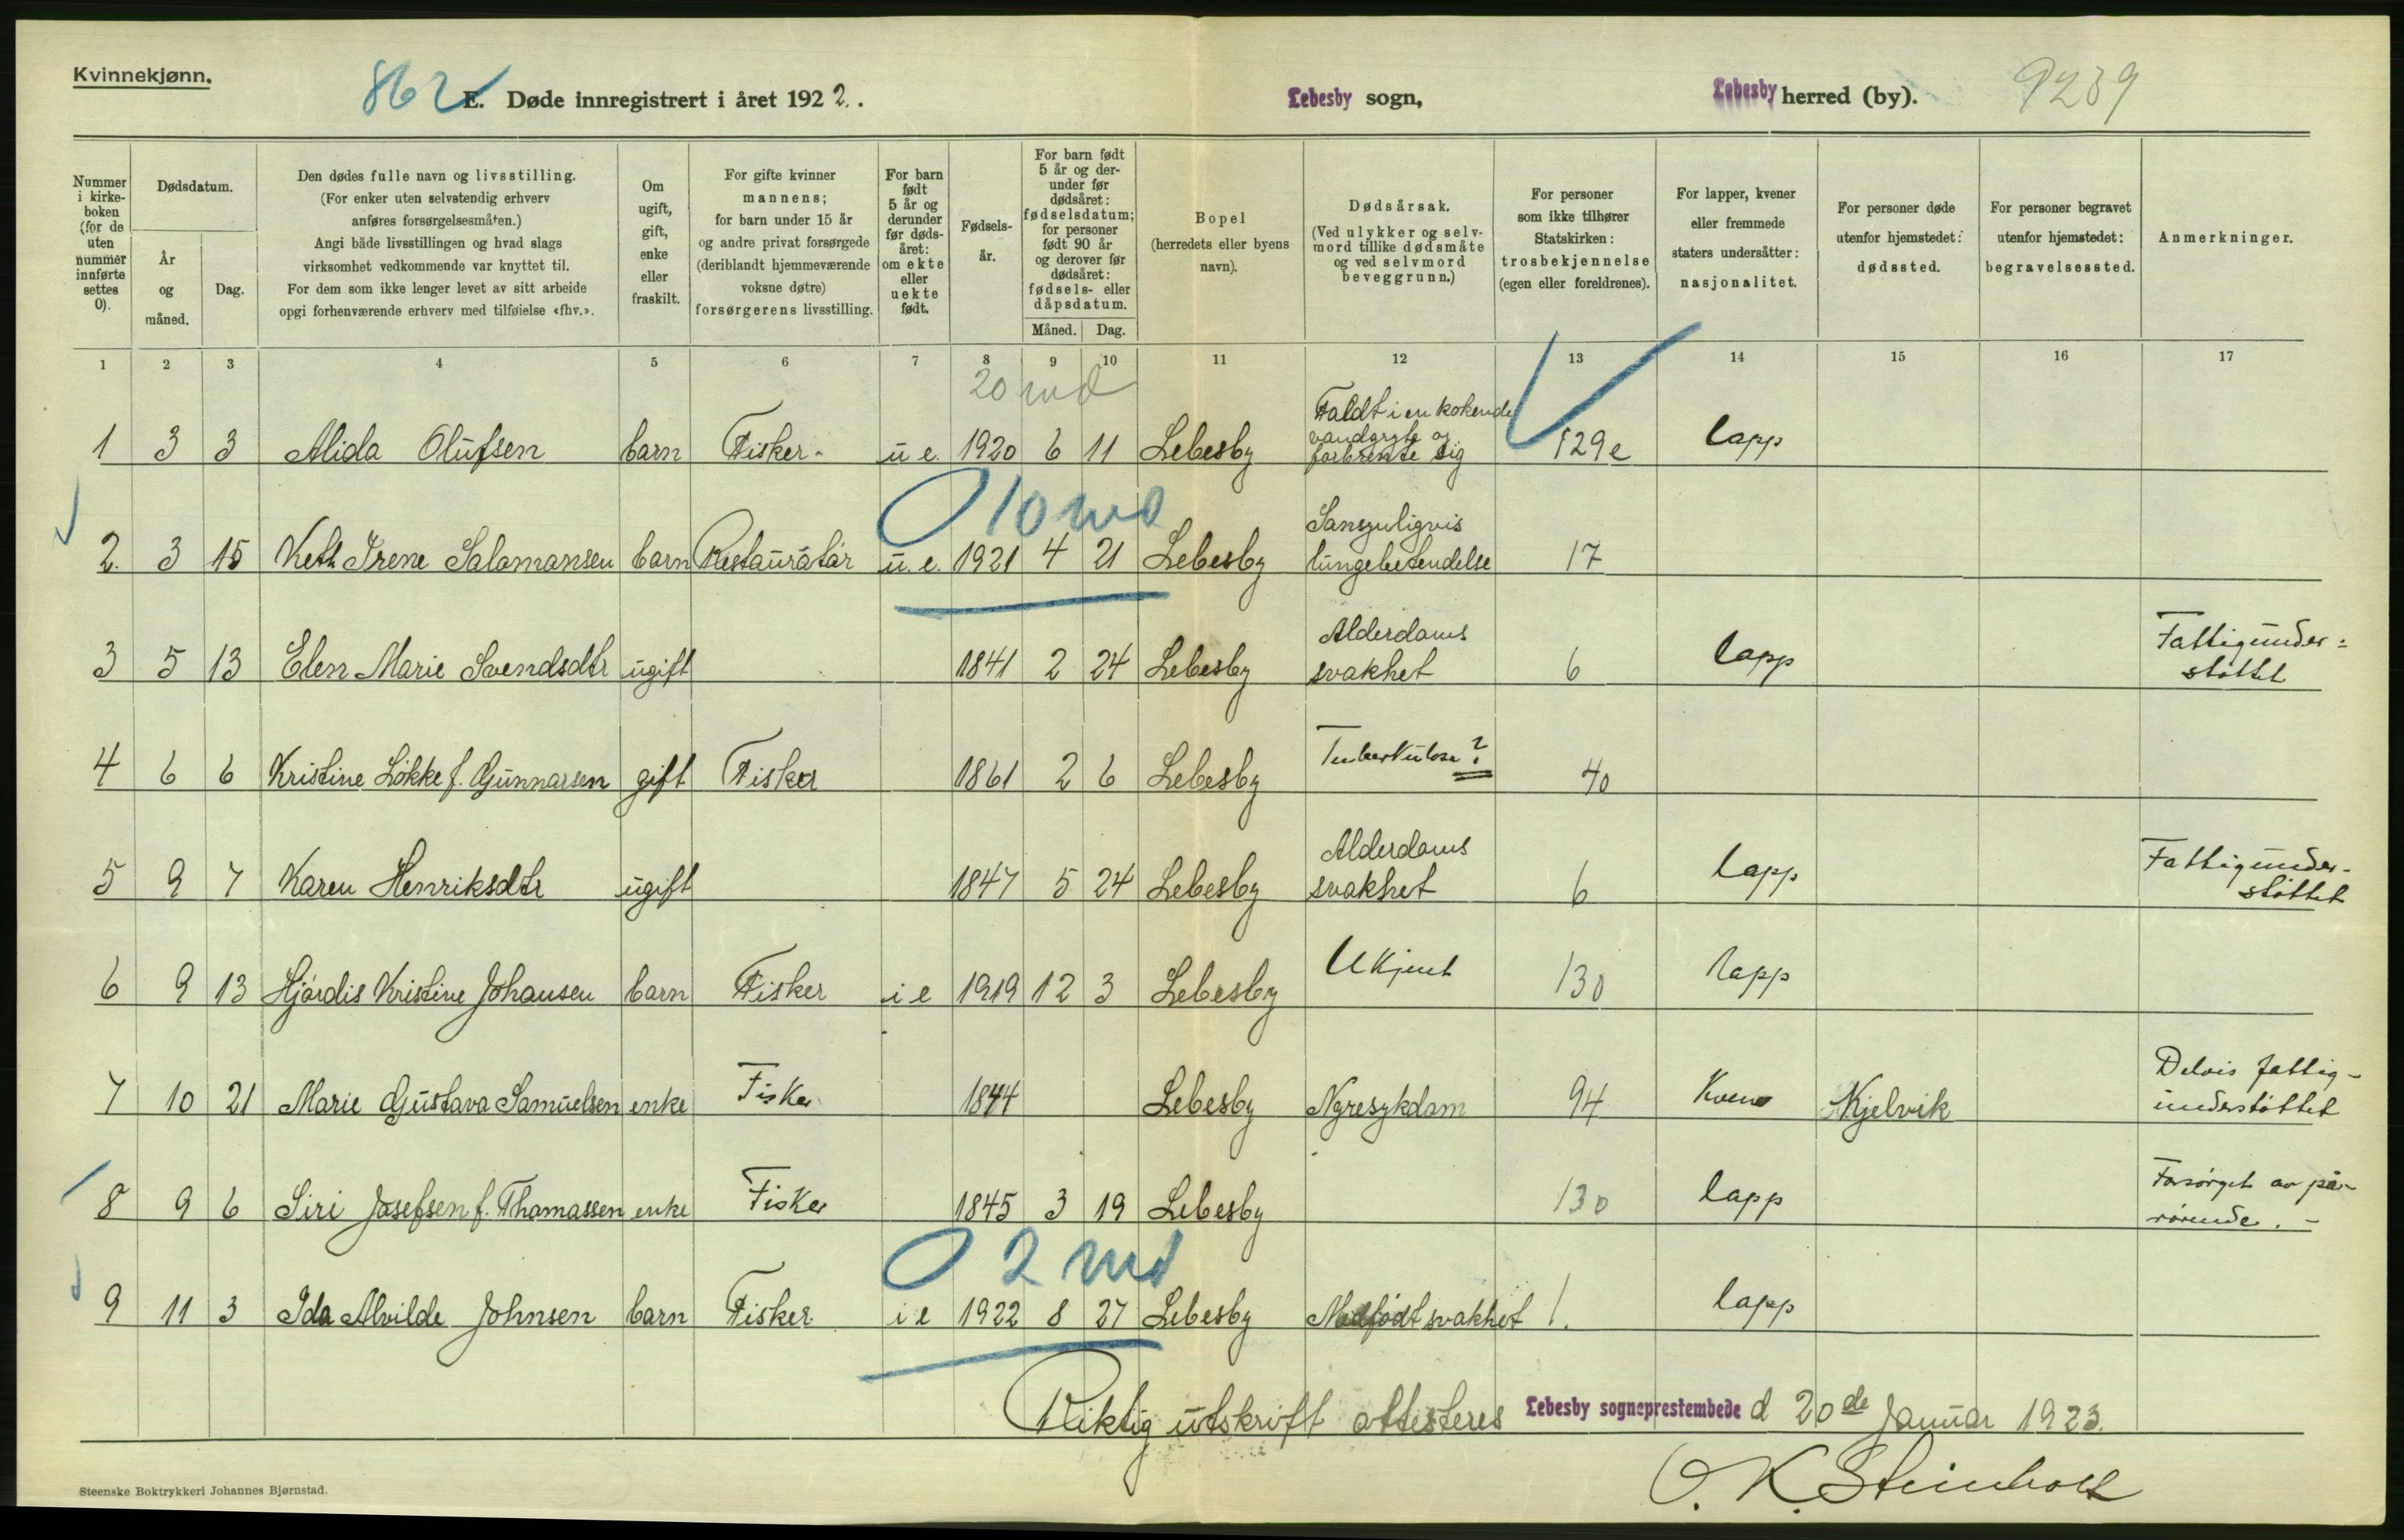 Kvinnekjønn.
862 E. Døde innregistrert i året 1922. Lebesby sogn, Lebesby herred (by). 9239
Nummer i kirkeboken (for de uten nummer innførte settes 0).
Dødsdatum.
År og måned.
Dag.
Den dødes fulle navn og livsstilling.
(For enker uten selvstendig erhverv
anføres forsørgelsesmåten.)
Angi både livsstillingen og hvad slags
virksomhet vedkommende var knyttet til.
For dem som ikke lenger levet av sitt arbeide
opgi forhenværende erhverv med tilføielse «fhv.».
Om ugift, gift, enke eller fraskilt.
For gifte kvinner
mannens;
for barn under 15 år
og andre privat forsørgede
(deriblandt hjemmeværende
voksne døtre)
forsørgerens livsstilling.
For barn født 5 år og derunder før dødsåret: om ekte eller uekte født.
Fødselsår.
For barn født 5 år og derunder før dødsåret: fødselsdatum; for personer født 90 år og derover før dødsåret: fødsels- eller dåpsdatum.
Måned. Dag.
Bopel
(herredets eller byens
navn).
Dødsårsak.
(Ved ulykker og selv-
mord tillike dødsmåte
og ved selvmord
beveggrunn.)
For personer
som ikke tilhører
Statskirken:
trosbekjennelse
(egen eller foreldrenes).
For lapper, kvener
eller fremmede
staters undersåtter:
nasjonalitet.
For personer døde
utenfor hjemstedet:
dødssted.
For personer begravet
utenfor hjemstedet:
begravelsessted.
Anmerkninger.
1 2 3 4 5 6 7 8 9 10 11 12 13 14 15 16 17
20 md
1 3 3 Alida Olufsen barn Fisker u e 1920 6 11 Lebesby Faldt i en kokende vandgryte og forbrente sig 129e lapp
0 10 md
2. 3 15 Keth Irene Salamansen barn Restauratør u. e. 1921 4 21 Lebesby Sansynligvis lungebetendelse 17
3 5 13 Elen Marie Svendsdtr ugift 1841 2 24 Lebesby Alderdoms svakhet 6 lapp Fattigunder= støttet
4 6 6 Kristine Løkke f. Gunnarsen gift Fisker 1861 2 6 Lebesby Tuberkulose? 40
5 9 7 Karen Henriksdtr ugift 1847 5 24 Lebesby Alderdoms svakhet 6 lapp Fattigunder- støttet
6 9 13 Hjørdis Kristine Johansen barn Fisker i e 1919 12 3 Lebesby Ukjent 130 lapp
7 10 21 Marie Gustava Samuelsen enke Fisker 1844 Lebesby Nyresykdom 94 Kven Kjelvik Delvis fattig- understøttet
8 9 6 Siri Josefsen f. Thomassen enke Fisker 1845 3 19 Lebesby 130 lapp Forsørget av på- rørende. -
0 2 md
9 11 3 Ida Alvilde Johnsen barn Fisker i e 1922 8 27 Lebesby Medfødt svakhet 1. lapp
Riktig utskrift attesteres Lebesby sogneprestembede d 20de Januar 1923.
O. K. Steinholt
Steenske Boktrykkeri Johannes Bjørnstad.